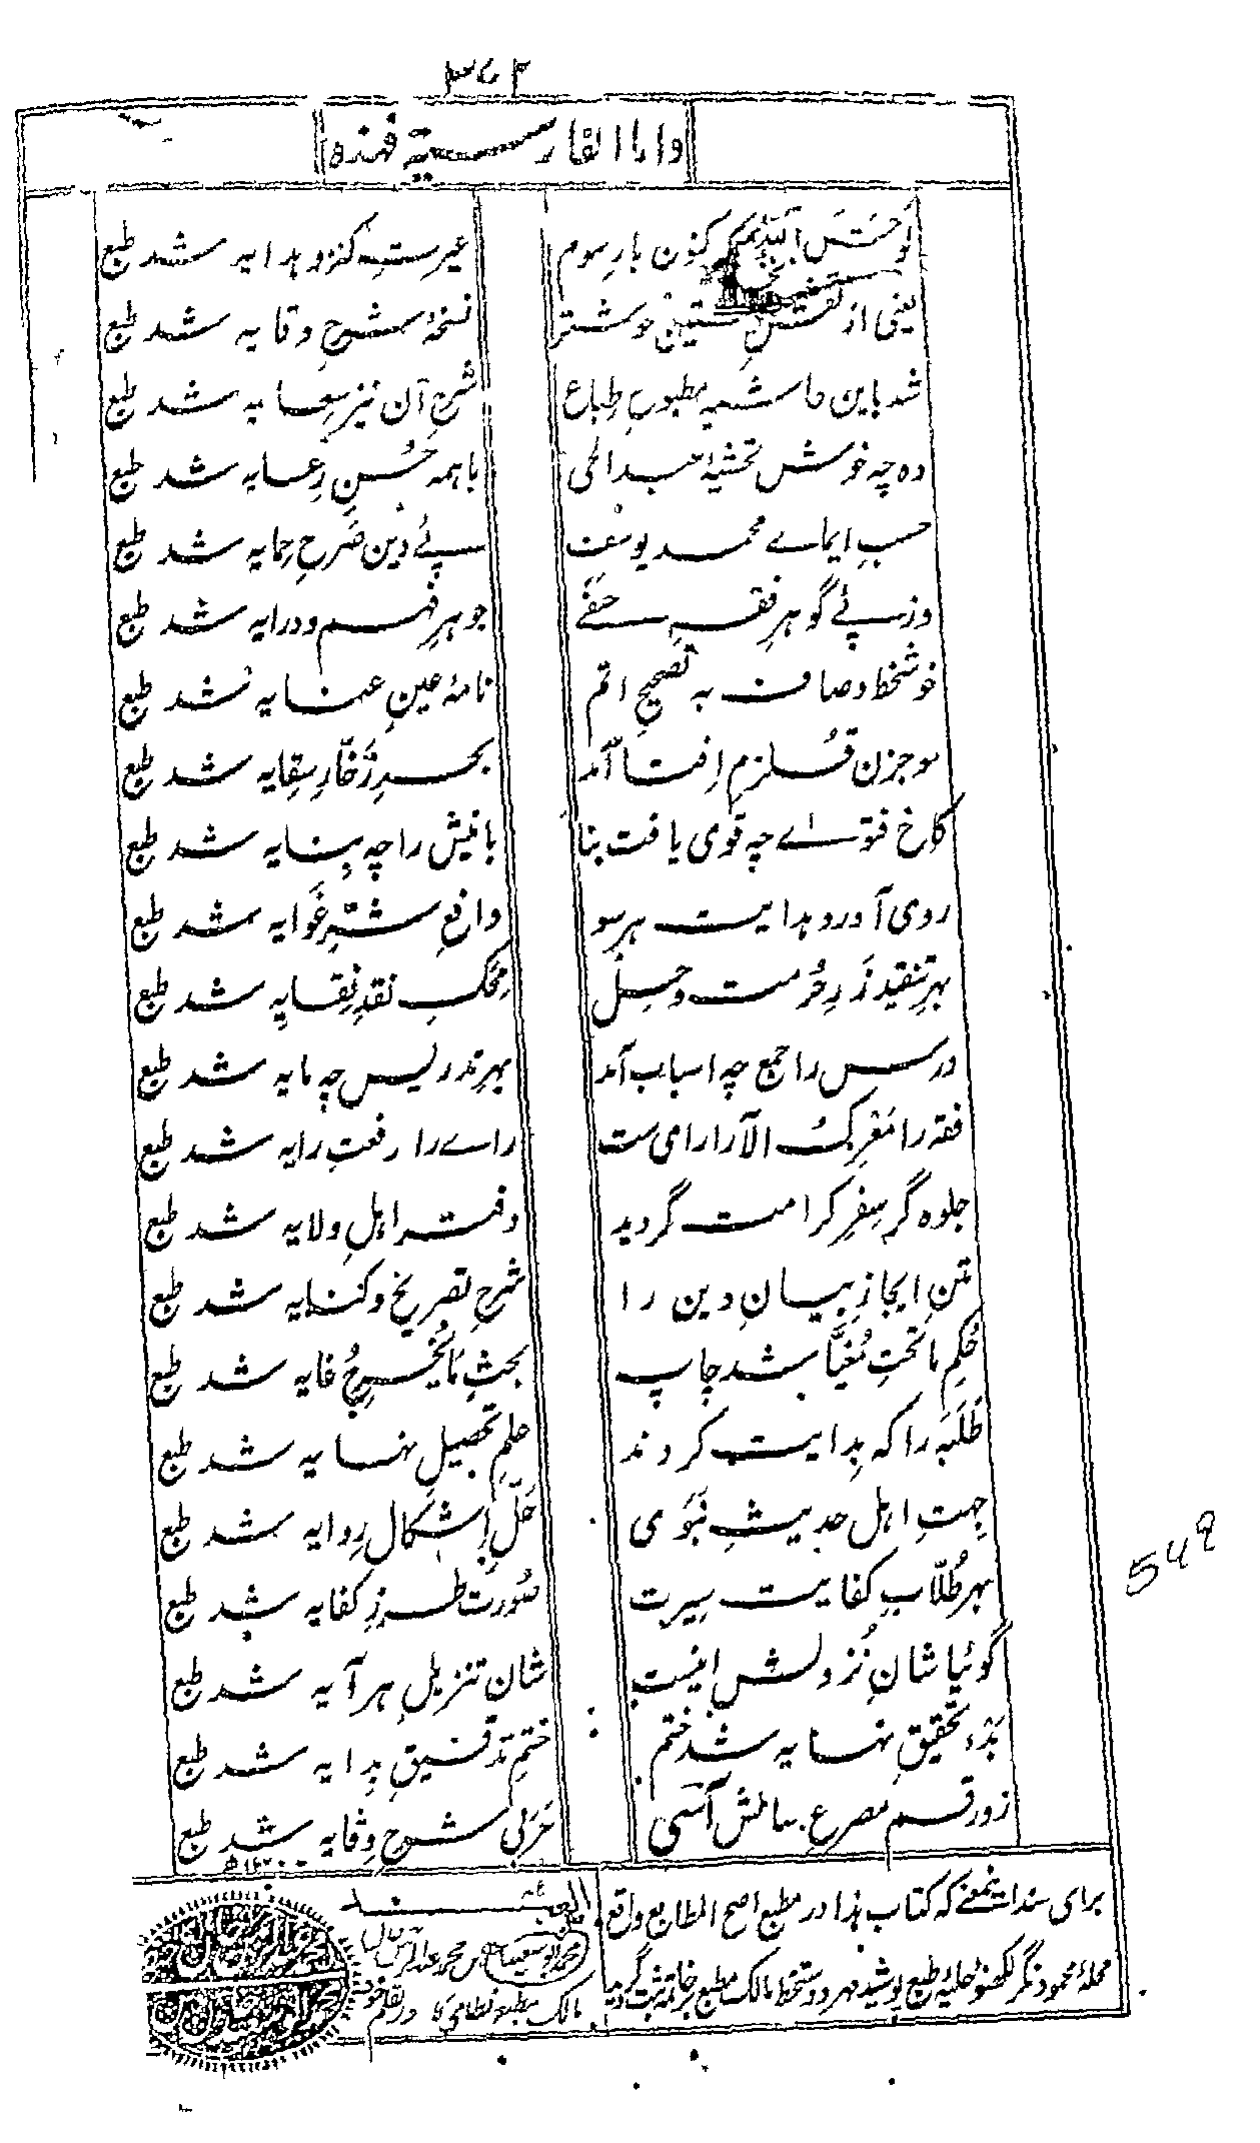 ۳۷۲
واما الفارسیة فهذه
لوحش اللہ کہ کنون بارِ سوم غیرتِ کنز و ہدایہ شد طبع
یعنی از نقشِ نخستین خوشتر نسخۂ شرحِ وقایہ شد طبع
شد باین حاشیہ مطبوعِ طباع شرحِ آن نیز سعایہ شد طبع
وہ چہ خوش تحشیۂ عبدالحی باہمہ حُسنِ رِعایہ شد طبع
حسبِ ایماے محمد یوسف پئے دین صَرحِ حِمایہ شد طبع
وز پئے گوہرِ فقہِ حنفے جوہرِ فہم و درایہ شد طبع
خوشخط و صاف بہ تصحیحِ اتم نامۂ عینِ عنایہ شد طبع
موجزن قُلزمِ اِفتا آمد بحرِ زخّارِ سِقایہ شد طبع
کاخ فتواے چہ قوی یافت بنا بانیش را چہ بِنایہ شد طبع
روی آورد ہدایت ہر سو دافعِ شرِّ غَوایہ شد طبع
بہرِ تنقیدِ زرِ حُرمت و حِل مِحَکِ نقدِ نِقایہ شد طبع
درس را جمع چہ اسباب آمد بہرِ تدریس چہ مایہ شد طبع
فقہ را مَعرکۃ الآرا رامی ست راے را رفعتِ رایہ شد طبع
جلوہ گر سِفرِ کرامت گردید دفترِ اہلِ ولایہ شد طبع
متنِ ایجازِ بیانِ دین را شرحِ تصریح و کنایہ شد طبع
حُکمِ ما تحتِ مُغَیّا شد چاپ بحثِ مَا یُخرِجُ غایہ شد طبع
طَلَبَہ را کہ ہِدایت کردند علمِ تحصیلِ نہایہ شد طبع
جِہتِ اہلِ حدیثِ نَبَوی حَلِّ اِشکالِ رِوایہ شد طبع
بہرِ طُلّابِ کفایت سِیرت صُورتِ طرزِ کفایہ شد طبع
گوئیا شانِ نُزولش اینست شانِ تنزیلِ ہر آیہ شد طبع
بَدءِ تحقیقِ نہایہ شد ختم ختمِ تدقیقِ بِدایہ شد طبع
زو رقم مصرعِ سالش آسی عَرَبی شرحِ وِقایہ شد طبع
برای سند اینمعنے کہ کتاب ہذا در مطبع اصح المطابع واقع
محلۂ محمود نگر لکھنؤ حلیۂ طبع پوشید مہر و دستخط مالک مطبع بر خاتمہ ثبت گردید
العبد
محمد ابو سعید محمد عبدالرحمٰن خان
مالک مطبع نظامی کانپور بقلم خود
549